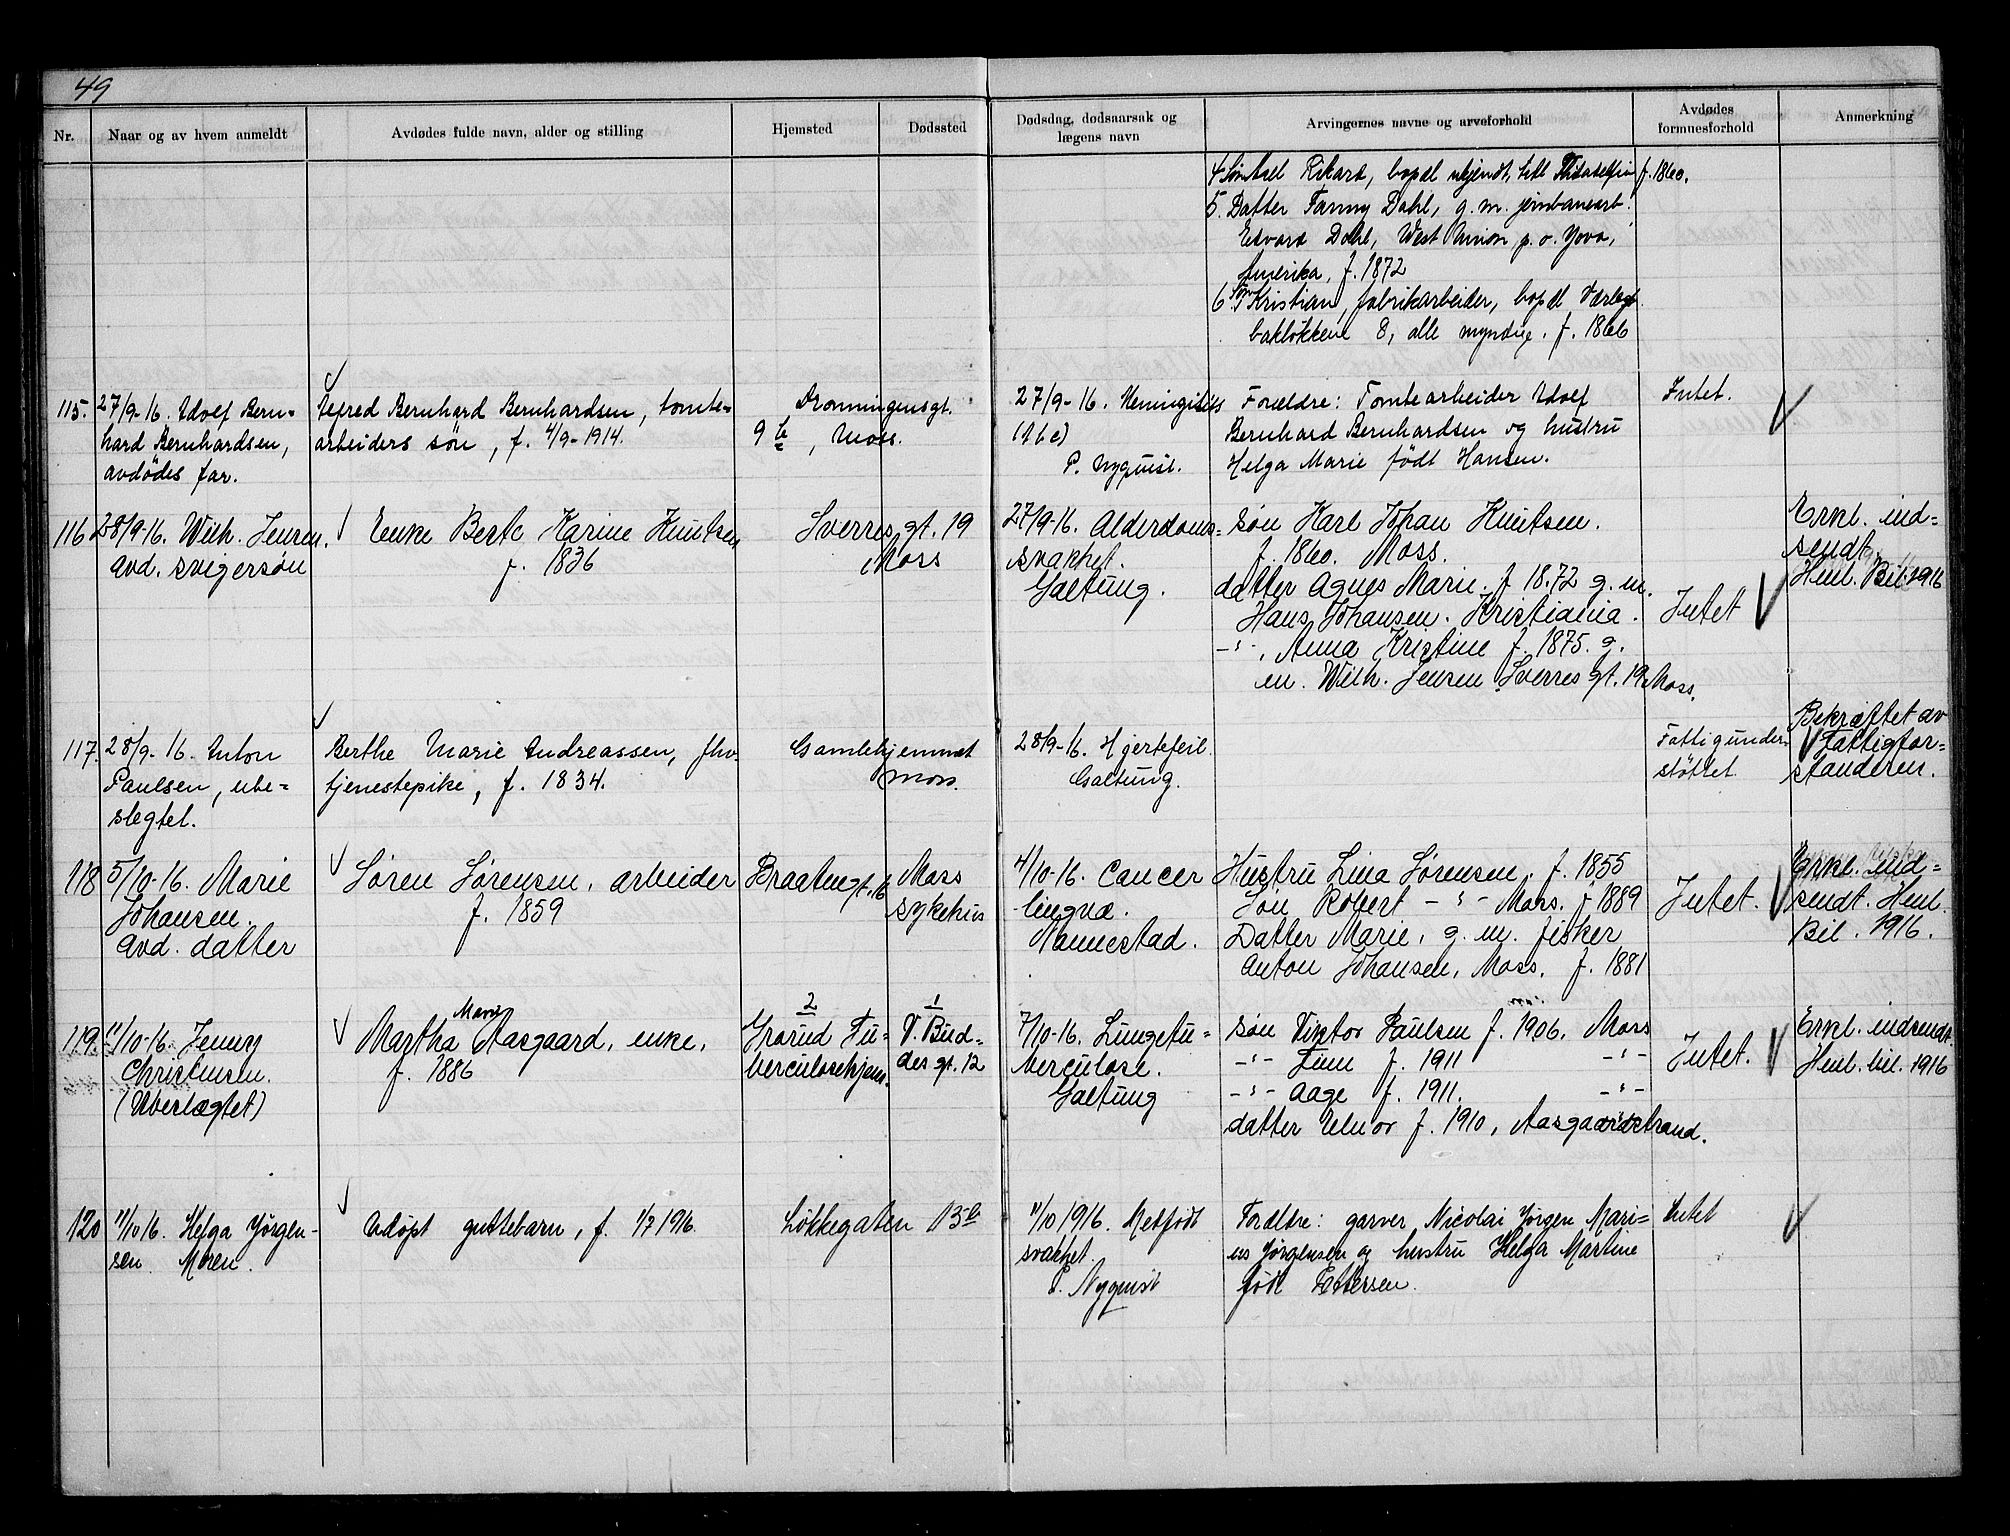 49
Nr.
Naar og av hvem anmeldt
Avdødes fulde navn, alder og stilling
Hjemsted
Dødssted
Dødsdag, dødsaarsak og
lægens navn
Arvingernes navne og arveforhold
Avdødes
formuesforhold
Anmerkning
4 Søn Axel Rikard, bopæl ukjendt, sidst Philadelfia f. 1860.
5. Datter Fanny Dahl, g. m. jernbanearb.
Edvard Dahl, West Union p. o. Yova,
Amerika, f. 1872
6. Søn Kristian, fabrikarbeider, bopæl Værlegt.
bakløkkene 8, alle myndige. f. 1866
115.
27/9-16. Adolf Bern=
hard Bernhardsen,
avdødes far.
Alfred Bernhard Bernhardsen, tomte=
arbeiders søn, f. 4/9-1914.
Dronningensgt.
9 b, Moss.
27/9-16. Meningitis
(16 c)
P. Nyquist.
Forældre: Tomtearbeider Adolf
Bernhard Bernhardsen og hustru
Helga Marie født Hansen.
Intet.
116
28/9-16. Wilh. Jensen.
avd. svigersøn
Enke Berte Karine Knutsen
f. 1836
Sverres gt. 19
Moss
27/9-16. Alderdoms=
svakhet.
Galtung.
søn Karl Johan Knutsen.
f. 1860. Moss.
datter Agnes Marie. f 1872 g. m.
Hans Johansen. Kristiania.
-"-, Anna Kristine f. 1875. g.
m. Wilh. Jensen Sverres gt. 19 Moss.
Intet
Erkl. ind=
sendt
Henl. Bil. 1916
117.
28/9-16. Anton
Paulsen, ube=
slegtet.
Berthe Marie Andreassen, fhv.
tjenestepike, f. 1834.
Gamlehjemmet
Moss.
28/9-16. Hjertefeil.
Galtung.
Fattigunder=
støttet
Bekræftet av
Fattigfor=
standeren.
118
5/10-16. Marie
Johansen.
avd. datter
Søren Sørensen, arbeider
f. 1859
Braatengt. 16
Moss
sykehus
4/10-16. Cancer
lingvæ.
Nannestad.
Hustru Lina Sørensen. f. 1855
Søn Robert -"- Moss. f 1889
Datter Marie, g. m. fisker
Anton Johansen, Moss. f. 1881
Intet.
Erkl. ind=
sendt. Henl.
Bil. 1916.
119.
11/10-16. Jenny
Christensen.
(Ubeslægtet)
Marie
Martha Aasgaard, enke,
f. 1886
2
Grorud Tu=
berculosehjem.
1
V. Bud=
des gt. 12
7/10-16. Lungetu=
berculose.
Galtung
søn Viktor Paulsen f. 1906. Moss
-"- Finn f. 1911 -"-
-"- Aage f. 1911. -"-
datter Elnor f. 1910, Aasgaardstrand.
Intet.
Erkl. indsendt.
Henl. bil. 1916
120
11/10 16. Helga Jørgen-
sen Moren.
Udøpt guttebarn, f. 1/7 1916.
Løkkegaten 13 b
11/10 1916. Medfødt
svakhet
P. Nyquist
Forældre: garver Nicolai Jørgen Mari=
us Jørgensen og hustru Helga Martine
født Pettersen.
Intet